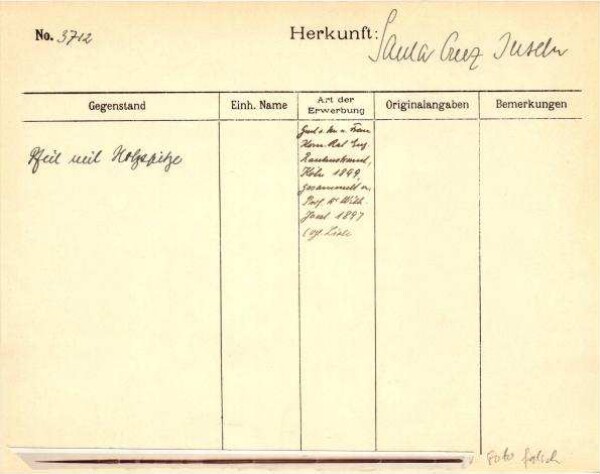 No. 3712
Herkunft: Santa Cruz Inseln
Gegenstand
Einh. Name
Art der Erwerbung
Originalangaben
Bemerkungen
Pfeil mit Holzspitze
Gesch. v. Hrn u. Frau
Kom. Rat Eug.
Rautenstrauch,
Köln 1899,
gesammelt v.
Prof. Dr Wilh.
Joest 1897
(vgl. Liste
Foto falsch